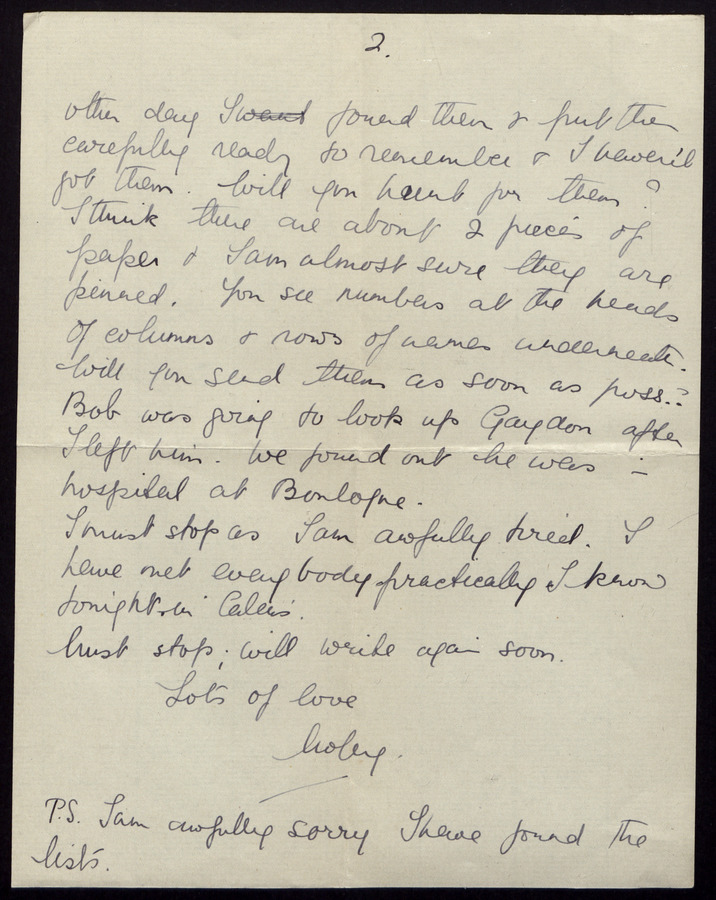 2.
other day I went found them & put them
carefully ready to remember & I haven't
got them. Will you hunt for them?
I think there are about 2 pieces of
paper & I am almost sure they are
penned. You see numbers at the heads
of columns & rows of names underneath.
Will you send them as soon as poss.?
Bob was going to look up Gaydon after
I left him. We found out he was in
hospital at Boulogne.
I must stop as I am awfully tired. I
have met everybody practically I know
tonight in Calais.
Must stop; will write again soon.
Lots of love
P.S. I am awfully sorry I have found the
lists.